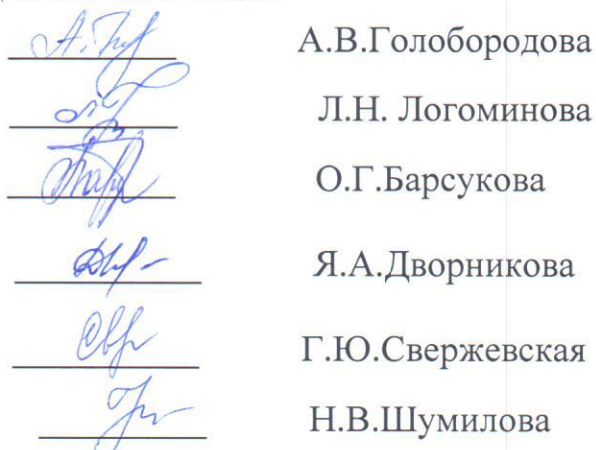 А.В.Голобородова
Л.Н. Логоминова
О.Г.Барсукова
Я.А.Дворникова
Г.Ю.Свержевская
Н.В.Шумилова